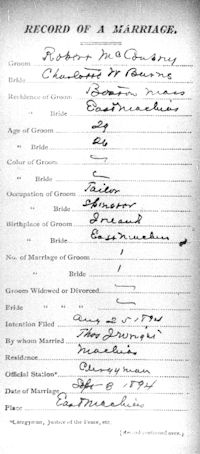 RECORD OF A MARRIAGE.
Groom Robert McCoubry
Bride Charlotte W Burns
Residence of Groom Boston Mass
" Bride East Machias
Age of Groom 29
" Bride 26
Color of Groom
" Bride
Occupation of Groom Tailor
" Bride Spinster
Birthplace of Groom Ireland
" Bride East Machias
No. of Marriage of Groom 1
" Bride 1
Groom Widowed or Divorced
Bride " " "
Intention Filed Aug 25 1894
By whom Married Thos J Wright
Residence Machias
Official Station* Clergyman
Date of Marriage Sept 8 1894
Place East Machias
*Clergyman, Justice of the Peace, etc.
(Record continued over.)